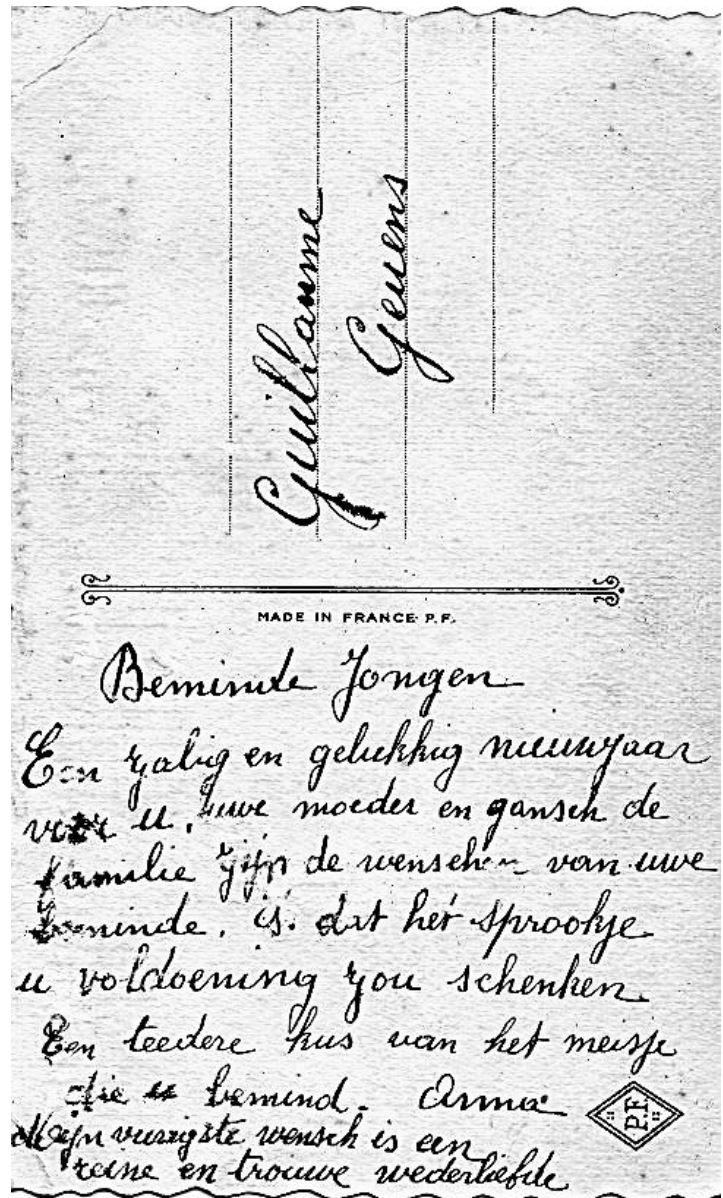 Guillaume
Geuens
MADE IN FRANCE P.F.
Beminde Jongen
Een zalig en gelukkig nieuwjaar
voor u, uwe moeder en gansch de
familie zijn de wenschen van uwe
beminde. is dat het sprookje
u voldoening zou schenken
Een teedere kus van het meisje
die u bemind. Anna
P.F.
Mijn vurigste wensch is een
reine en trouwe wederliefde